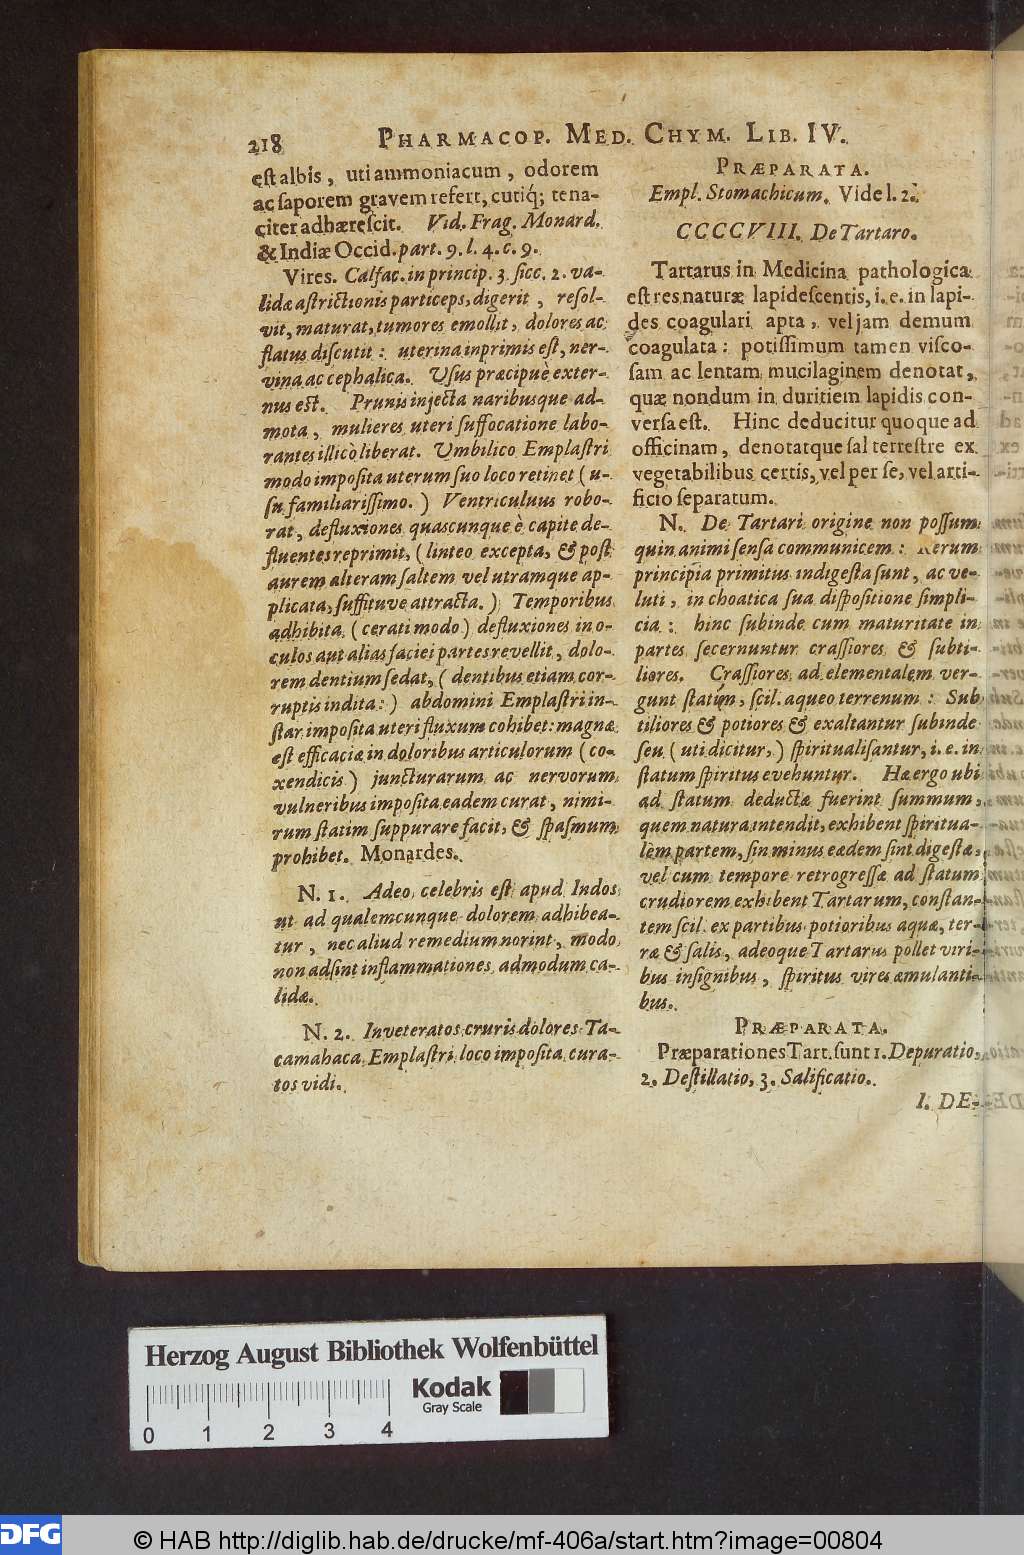 218 PHARMACOP. MED. CHYM. LIB. IV.
est albis, uti ammoniacum, odorem
ac saporem gravem refert, cutiq́; tena-
citer adhærescit. Vid. Frag. Monard.
& Indiæ Occid. part. 9. l. 4. c. 9.
Vires. Calfac. in princip. 3. sicc. 2. va-
lidæ astrictionis particeps, digerit, resol-
vit, maturat, tumores emollit, dolores ac
flatus discutit: uterina inprimis est, ner-
vina ac cephalica. Usus præcipuè exter-
nus est. Prunis injecta naribusque ad-
mota, mulieres uteri suffocatione labo-
rantes illicò liberat. Umbilico Emplastri
modo imposita uterum suo loco retinet (u-
su familiarissimo.) Ventriculuus robo-
rat, defluxiones quascunque è capite de-
fluentes reprimit, (linteo excepta, & post
aurem alteram saltem vel utramque ap-
plicata, suffituve attracta.) Temporibus
adhibita (cerati modo) defluxiones in o-
culos aut alias faciei partes revellit, dolo-
rem dentium sedat, (dentibus etiam cor-
ruptis indita:) abdomini Emplastri in-
star imposita uteri fluxum cohibet: magnæ
est efficaciæ in doloribus articulorum (co-
xendicis) juncturarum ac nervorum,
vulneribus imposita eadem curat, nimi-
rum statim suppurare facit, & spasmum
prohibet. Monardes.
N. 1. Adeo celebris est apud Indos
ut ad qualemcunque dolorem adhibea-
tur, nec aliud remedium norint, modo
non adsint inflammationes admodum ca-
lidæ.
N. 2. Inveteratos cruris dolores Ta-
camahaca Emplastri loco imposita cura-
tos vidi.
PRÆPARATA.
Empl. Stomachicum. Vide l. 2.
CCCCVIII. De Tartaro.
Tartarus in Medicina pathologica
est res naturæ lapidescentis, i. e. in lapi-
des coagulari apta, vel jam demum
coagulata: potissimum tamen visco-
sam ac lentam mucilaginem denotat,
quæ nondum in duritiem lapidis con-
versa est. Hinc deducitur quoque ad
officinam, denotatque sal terrestre ex
vegetabilibus certis, vel per se, vel arti-
ficio separatum.
N. De Tartari origine non possum
quin animi sensa communicem: Rerum
principia primitus indigesta sunt, ac ve-
luti, in choatica sua dispositione simpli-
cia: hinc subinde cum maturitate in
partes secernuntur crassiores & subti-
liores. Crassiores ad elementalem ver-
gunt statum, scil. aqueo terrenum: Sub
tiliores & potiores & exaltantur subinde
seu (uti dicitur,) spiritualisantur, i. e. in
statum spiritus evehuntur. Hæ ergo ubi
ad statum deductæ fuerint summum,
quem natura intendit, exhibent spiritua-
lem partem, sin minus eædem sint digestæ,
vel cum tempore retrogressæ ad statum
crudiorem exhibent Tartarum, constan-
tem scil. ex partibus potioribus aquæ, ter-
ræ & salis, adeoque Tartarus pollet viri-
bus insignibus, spiritus vires æmulanti-
bus.
PRÆPARATA.
Præparationes Tart. sunt 1. Depuratio,
2. Destillatio, 3. Salificatio.
I. DE-
Herzog August Bibliothek Wolfenbüttel
Kodak
Gray Scale
0 1 2 3 4
DFG © HAB http://diglib.hab.de/drucke/mf-406a/start.htm?image=00804